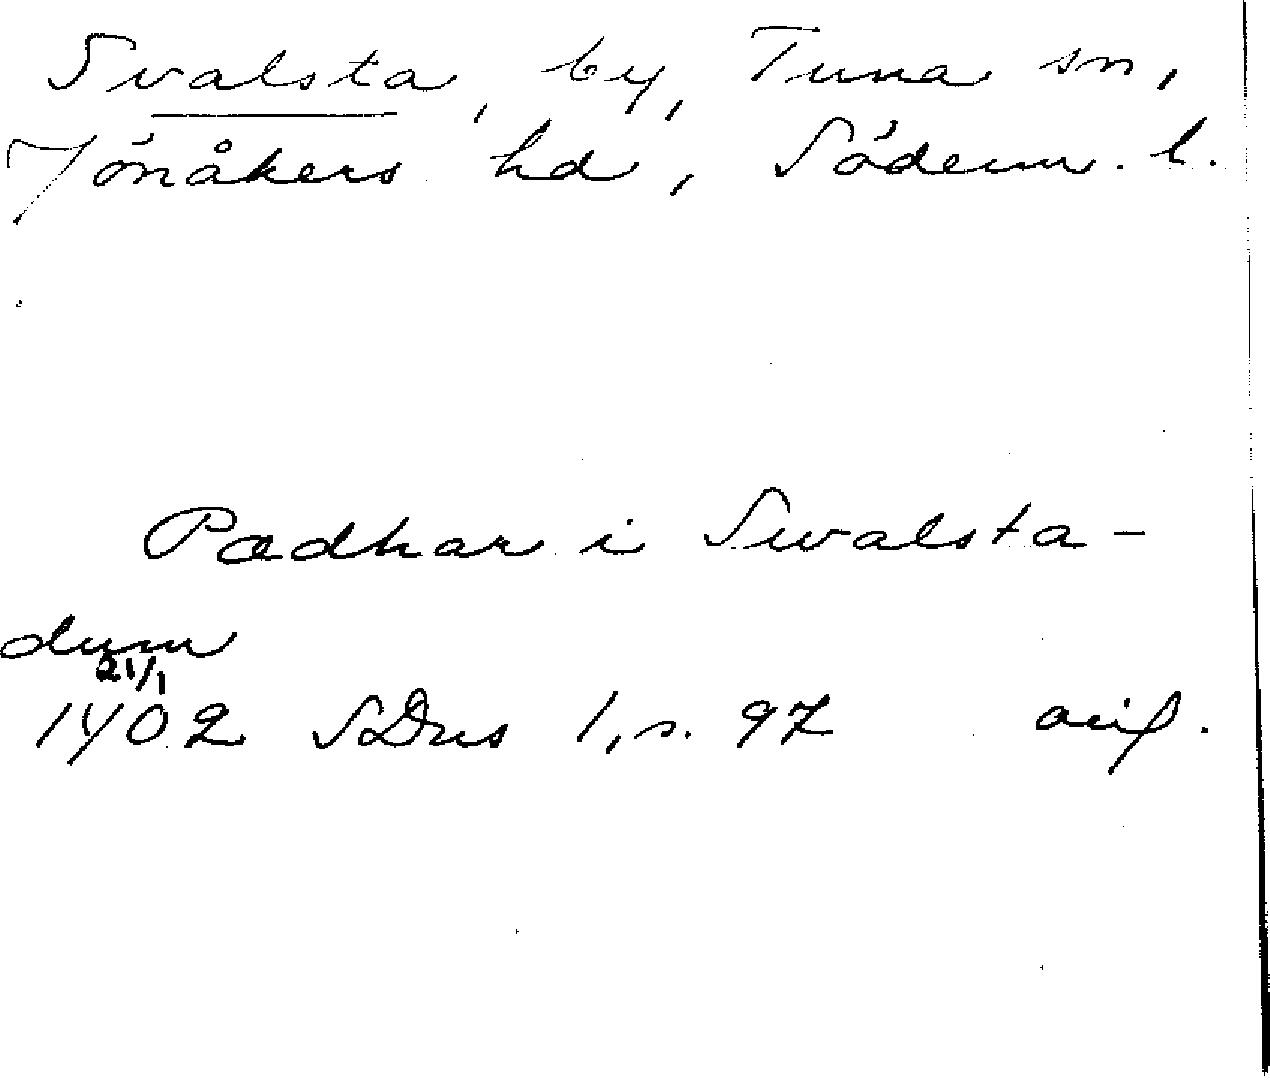 Svalsta, by, Tuna sn,
Jönåkers hd, Söderm. l.
Pædhar i Swalsta-
dum
21/1
1402 SDns 1, s. 97 avs.